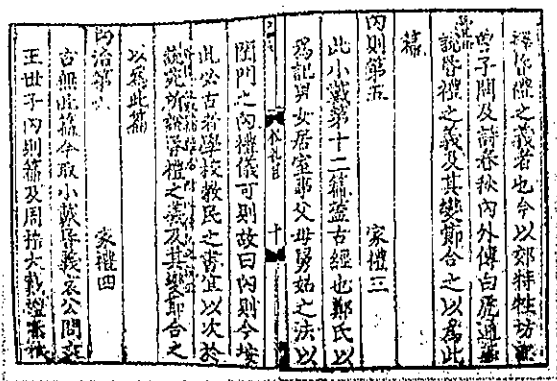 釋作禮之義者也今以郊特牲坊記
曾子問及詩春秋內外傳白虎通
說昏禮之義及其變節合之以為此
篇
內則第五 家禮三
此小戴第十二篇蓋古經也鄭氏以
為記男女居室事父母舅姑之法以
閨門之內禮儀可則故曰內則今按
此必古者學校教民之書宜以次於
說昏禮之義及其變節合之
以為此篇
內治第六 家禮四
古無此篇今取小戴昏義哀公問
王世子內則篇及周禮大戴禮春秋